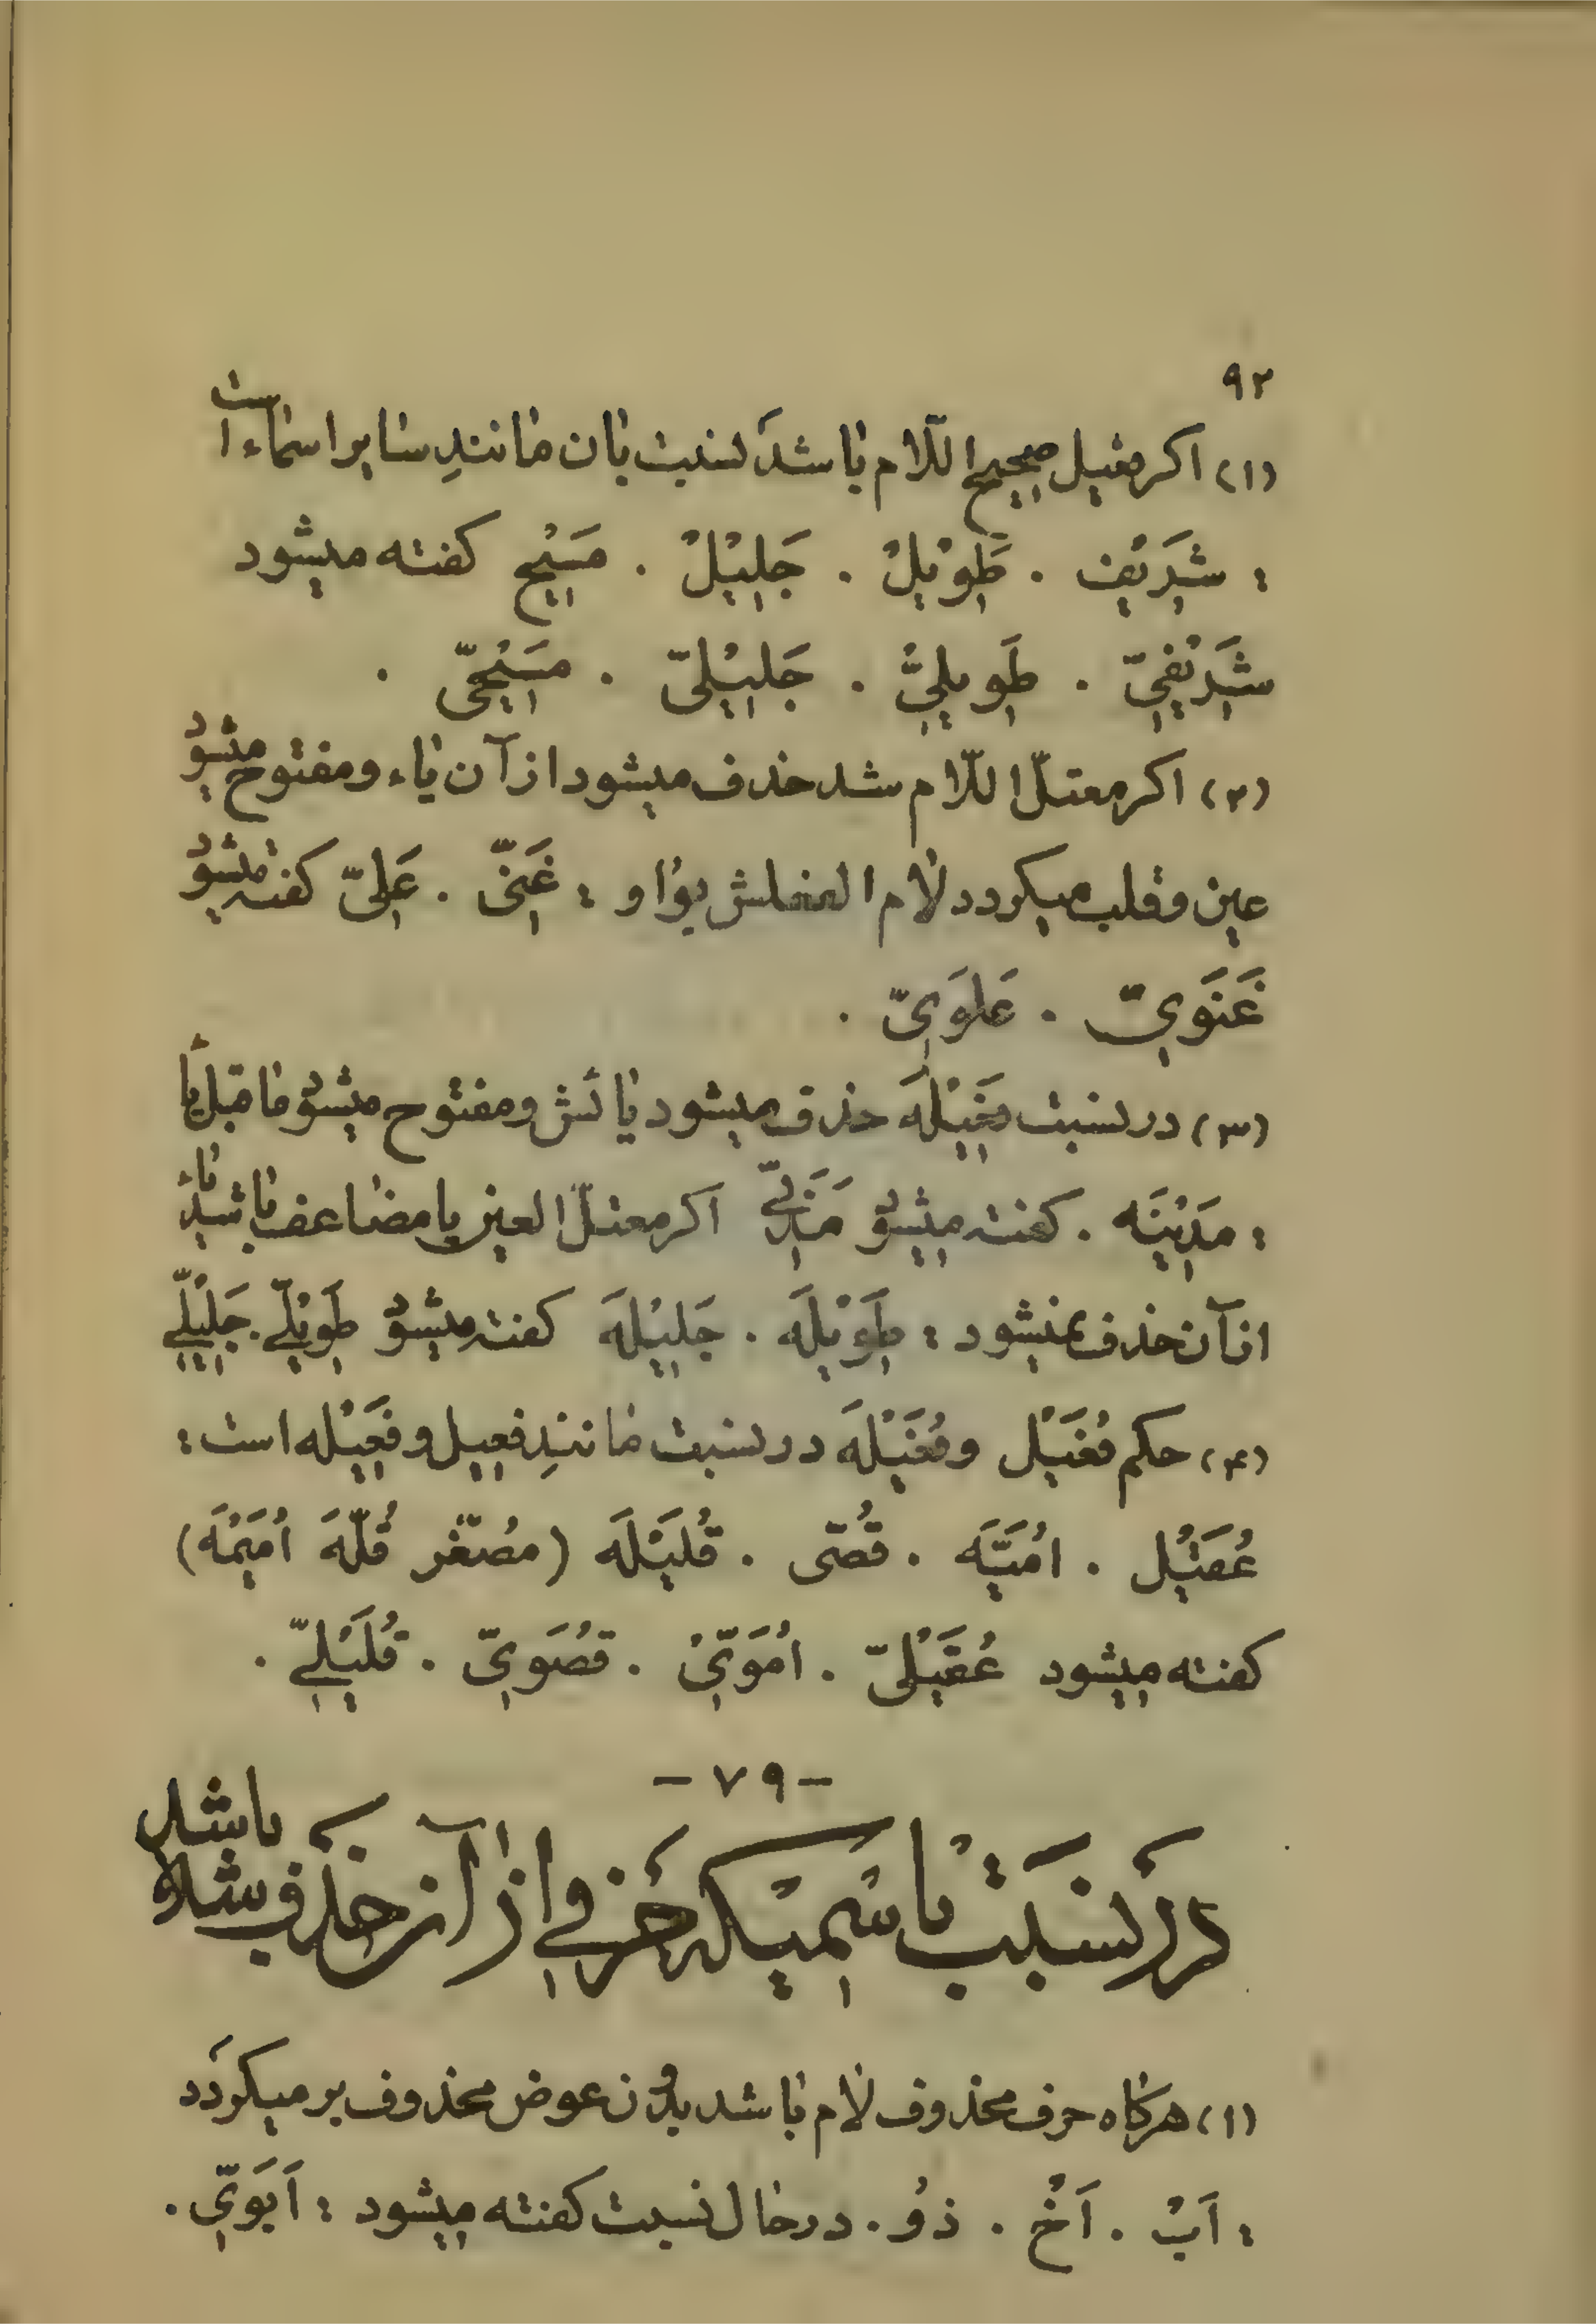 ۹۲
(۱) اکر فعیل صحیح اللّام باشد نسبت بان مانندِ سایر اسماء است
: شَرِیْف . طَوِیْلْ . جَلِیْلْ . مَسِیْح کفته میشود
شَرِیْفِیّ . طَوِیلِیُّ . جَلِیْلِیّ . مَسِیْحِیّ .
(۲) اکر معتلّ اللّام شد حذف میشود از آن یاء و مفتوح میشود
عین و قلب میکردد لام الفعلش بواو : غَنِیّ . عَلِیّ کفته میشود
غَنَوِیّ . عَلَوِیّ .
(۳) در نسبت فَعِیْلَه حذف میشود یائش و مفتوح میشود ماقبل یا
: مَدِیْنَه . کفته میشود مَدَنِیّ اکر معتلّ العین یا مضاعف باشد یاء
از آن حذف نمیشود : طَوِیْلَه . جَلِیْلَه کفته میشود طَوِیْلِیّ . جَلِیْلِیّ
(۴) حکم فُعَیْل و فُعَیْلَه در نسبت مانندِ فعیل و فَعِیْله است :
عُقَیْل . اُمَیَّه . قُصَّی . قُلَیْلَه (مُصَغّر قُلَّهَ اُمَیْمَه)
کفته میشود عُقَیْلِیّ . اُمَوِیّ . قُصَوِیّ . قُلَیْلِیّ .
- ۷۹ -
دَر نِسْبَتْ باسْمِیْکه حَرْفی از آن حَذف شده باشد
(۱) هرکاه حرف محذوف لام باشد بدون عوض محذوف بر میکردد
: اَبْ . اَخْ . ذوُ . در حال نسبت کفته میشود : اَبَوِیّ .